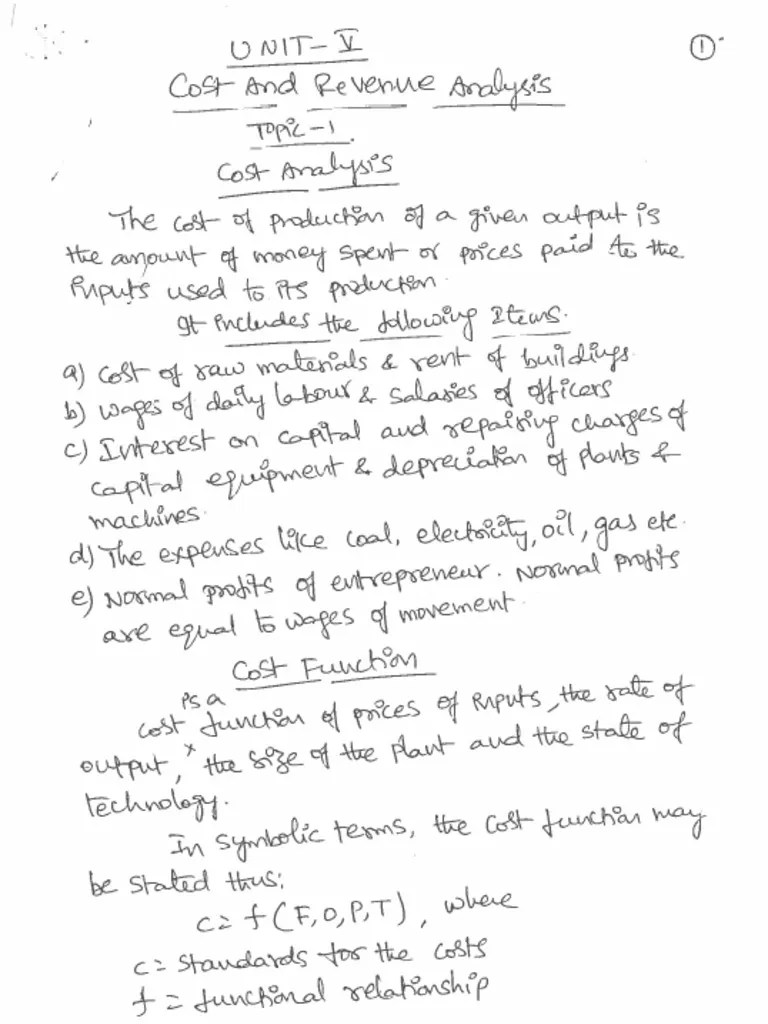 UNIT-V
1
Cost And Revenue Analysis
Topic-1.
Cost Analysis
The cost of production of a given output is
the amount of money spent or prices paid to the
inputs used to its production.
It includes the following Items.
a) Cost of raw materials & rent of buildings.
b) Wages of daily labour & salaries of officers
c) Interest on capital and repairing charges of
capital equipment & depreciation of plants &
machines.
d) The expenses like coal, electricity, oil, gas etc.
e) Normal profits of entrepreneur. Normal profits
are equal to wages of movement.
Cost Function
is a
Cost function of prices of inputs, the rate of
output, x the size of the plant and the state of
technology.
In symbolic terms, the cost function may
be stated thus:
C = f (F, O, P, T), where
C = standards for the costs
f = functional relationship